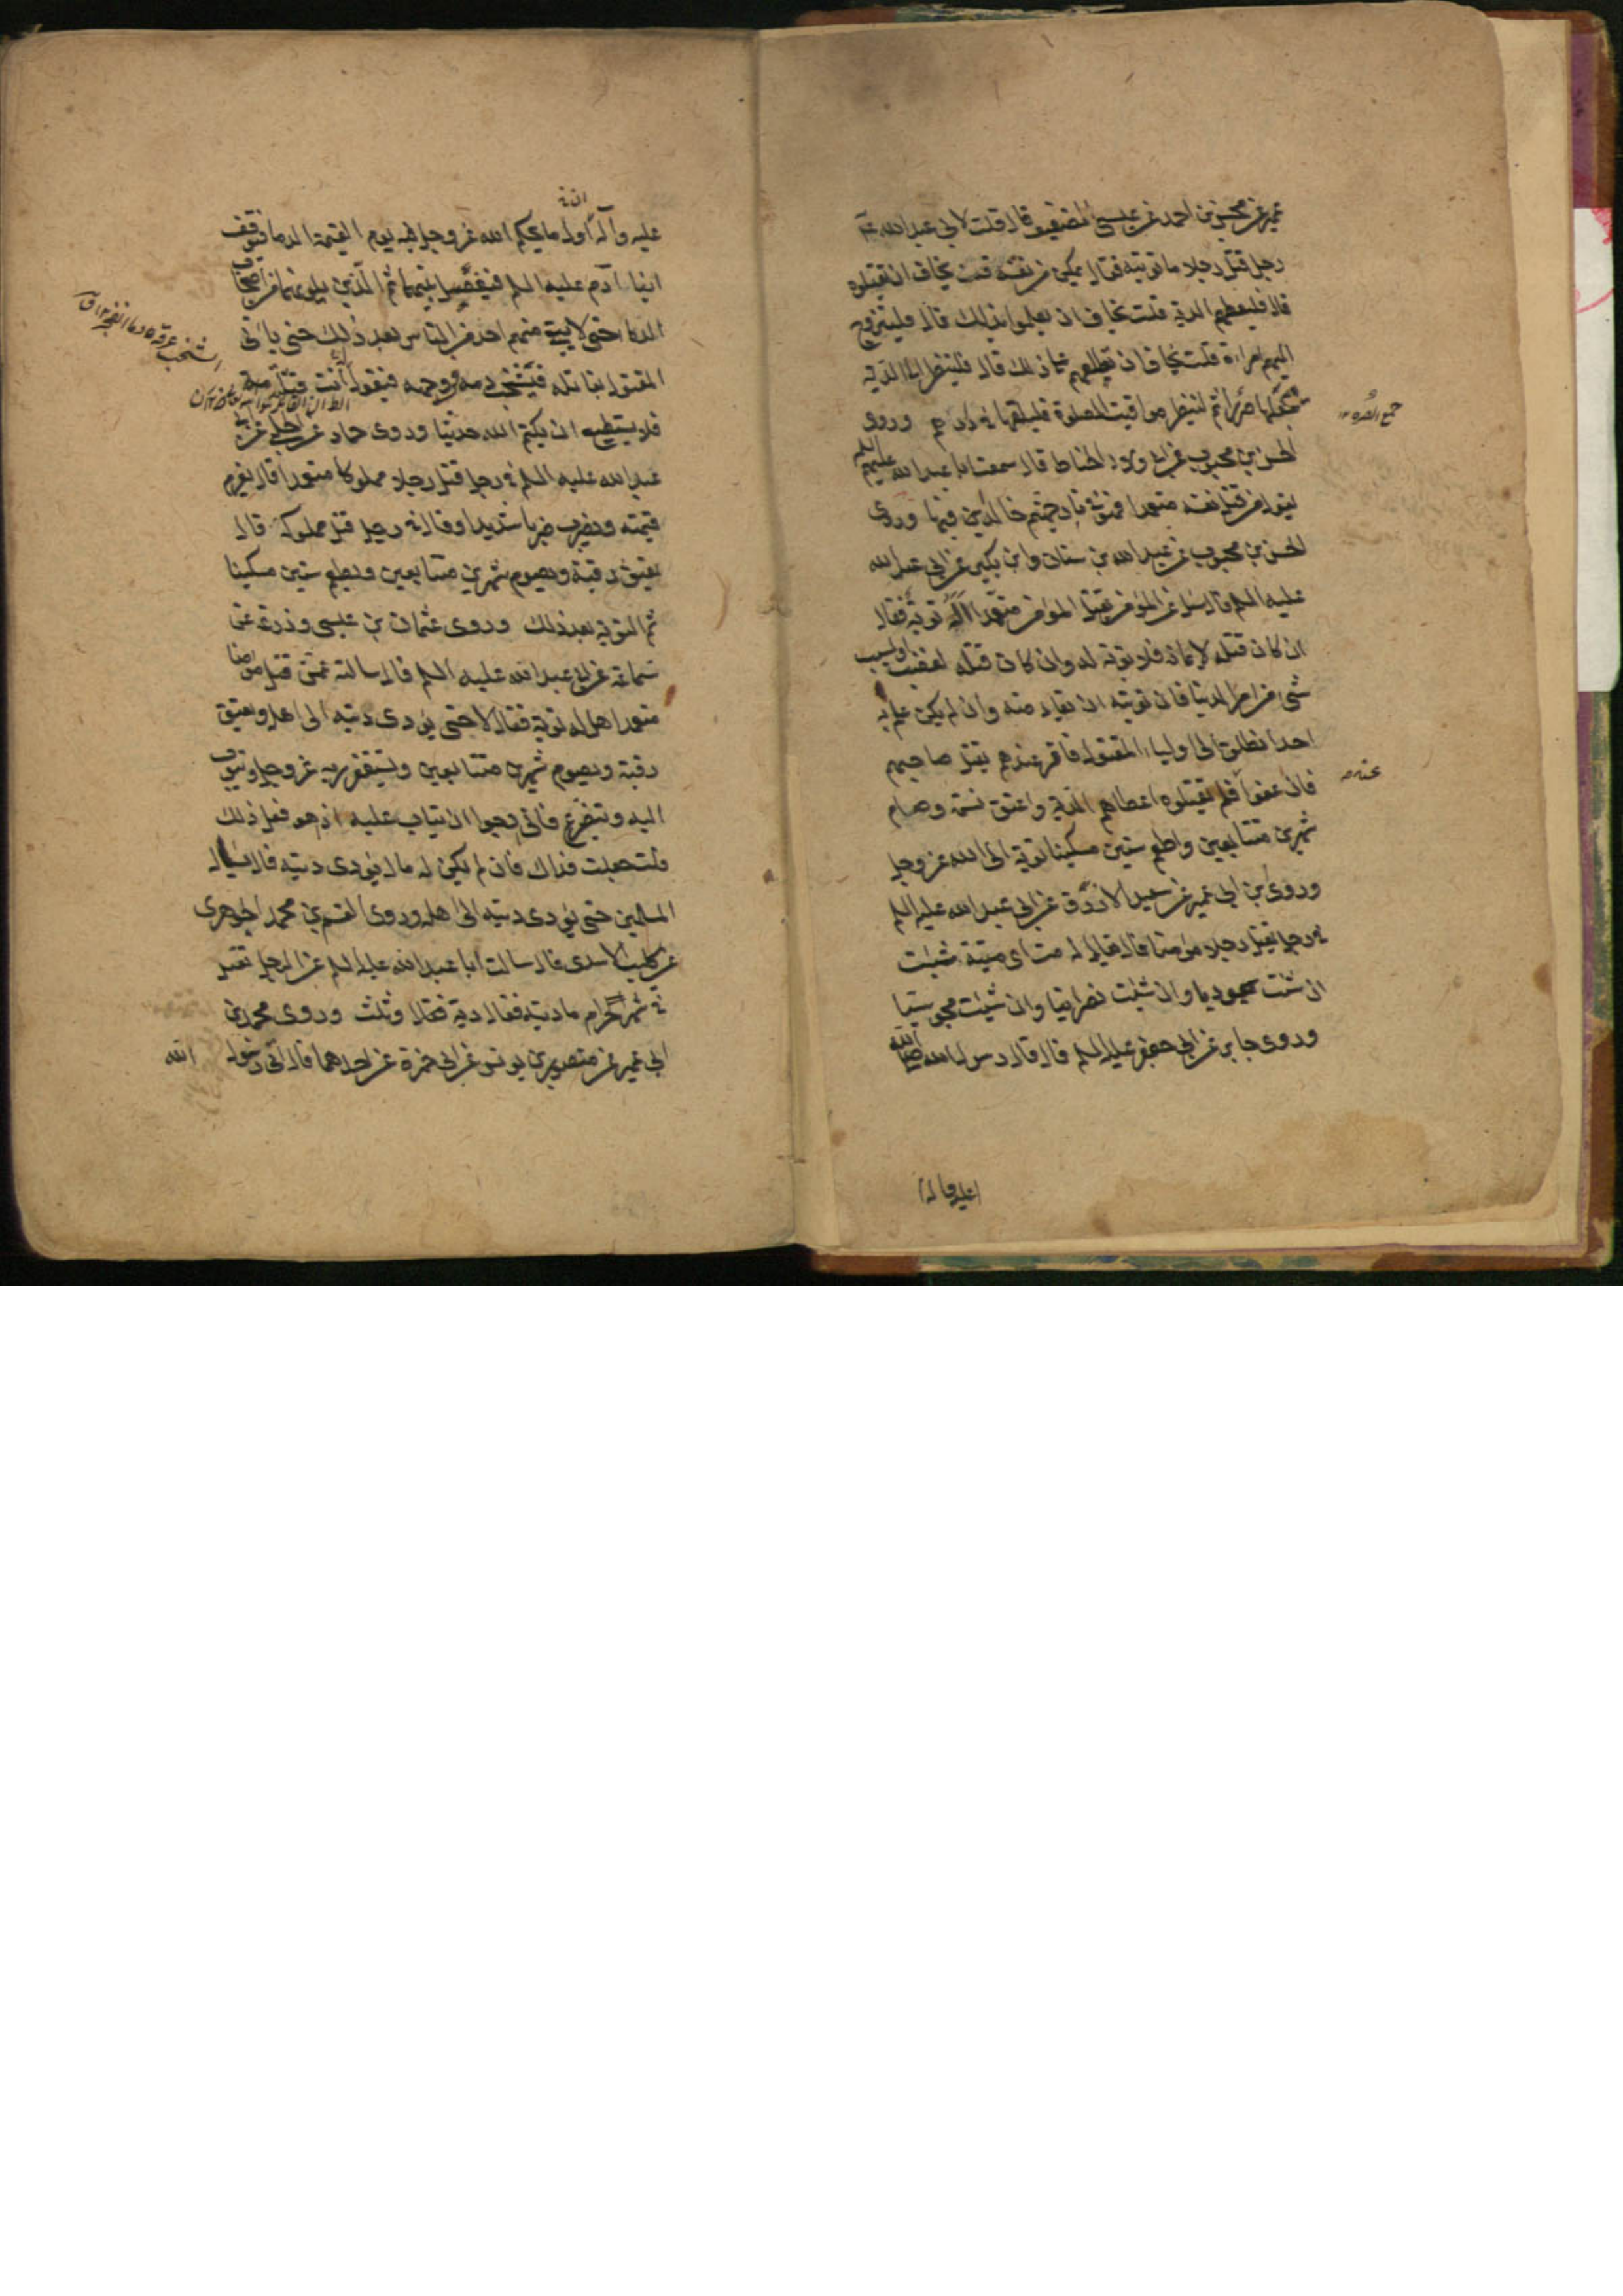 عمير عن محسن بن احمد عن عيسى الضعيف قال قلت لابي عبد الله عم
رجل قتل رجلا ما توبته فقال يمكن من نفسه قلت يخاف ان يقتلوه
قال فليعطهم الدية قلت يخاف ان يعلموا بذلك قال فليتزوج
اليهم امراءة قلت يخاف ان تطلعهم على ذلك قال فلينظر الى الدية
فيجعلها صررا ثم لينظر مواقيت الصلوة فليلقها في دارهم وروى
جمع الصره ١٢
الحسن بن محبوب عن ابي ولاد الحناط قال سمعت ابا عبد الله عليه السلم
يقول من قتل نفسه متعمدا فهو في نار جهنم خالدين فيها وروى
الحسن بن محبوب عن عبد الله بن سنان وابن بكير عن ابي عبد الله
عليه السلم قال سئل عن المؤمن يقتل المؤمن متعمدا أله توبة فقال
ان كان قتله لايمانه فلا توبة له وان كان قتله لغضب او لسبب
شئ من امر الدنيا فان توبته ان يقاد منه وان لم يكن علم به
احد انطلق الى اولياء المقتول فاقر عندهم بقتل صاحبهم
فان عفوا فلم يقتلوه اعطاهم الدية واعتق نسمة وصام
عنه
شهرين متتابعين واطعم ستين مسكينا توبة الى الله عز وجل
وروى بن ابي عمير عن سعيد الازرق عن ابي عبد الله عليه السلم
في رجل يقتل رجلا مؤمنا قال يقال له مت اى ميتة شئت
ان شئت يهوديا وان شئت نصرانيا وان شئت مجوسيا
وروى جابر عن ابي جعفر عليه السلم قال قال رسول الله صلى الله
عليه واله
عليه وآله اول ما يحكم الله عز وجل فيه يوم القيمة الدما فيوقف
ابنا آدم عليه السلم فيفصل بينهما ثم الذين يلونهما من اصحاب
الدماء حتى لا يبقى منهم احد من الناس بعد ذلك حتى ياتى
المقتول بقاتله فيشخب دمه في وجهه فيقول أنت قتلته
فلا يستطيع ان يكتم الله حديثا وروى حماد عن الحلبي عن ابي
عبد الله عليه السلم في رجل قتل رجلا مملوكا متعمدا قال يغرم
قيمته ويضرب ضربا شديدا وقال في رجل قتل مملوكه قال
يعتق رقبة ويصوم شهرين متتابعين ويطعم ستين مسكينا
ثم التوبة بعد ذلك وروى عثمان بن عيسى وزرعة عن
سماعة عن ابي عبد الله عليه السلم قال سالته عمن قتل مؤمنا
متعمدا هل له توبة فقال لا حتى يؤدى ديته الى اهله ويعتق
رقبة ويصوم شهرين متتابعين ويستغفر ربه عز وجل ويتوب
اليه ويتضرع فانى ارجوا ان يتاب عليه اذ هو فعل ذلك
قلت جعلت فداك فان لم يكن له مال يؤدى ديته قال يسال
المسلمين حتى يؤدى ديته الى اهله وروى القسم بن محمد الجوهرى
عن كليب الاسدى قال سالت ابا عبد الله عليه السلم عن الرجل يقتل
في شهر حرام ما ديته فقال دية وثلث وروى محمد بن
ابي عمير عن منصور بن يونس عن ابي حمزة عن احدهما قال اتى رسول الله